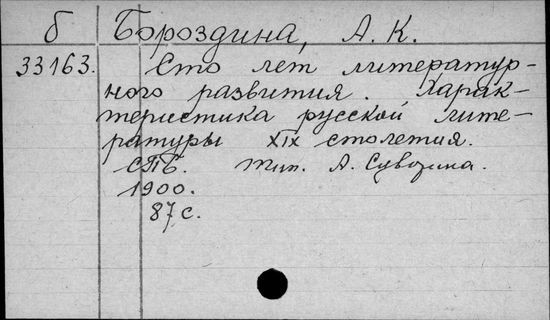 б Бороздина, А. К.
33163. Сто лет литератур-
ного развития. Харак-
теристика русской лите-
ратуры XIX столетия.
СПб. Тип. А. Суворина.
1900.
87 с.